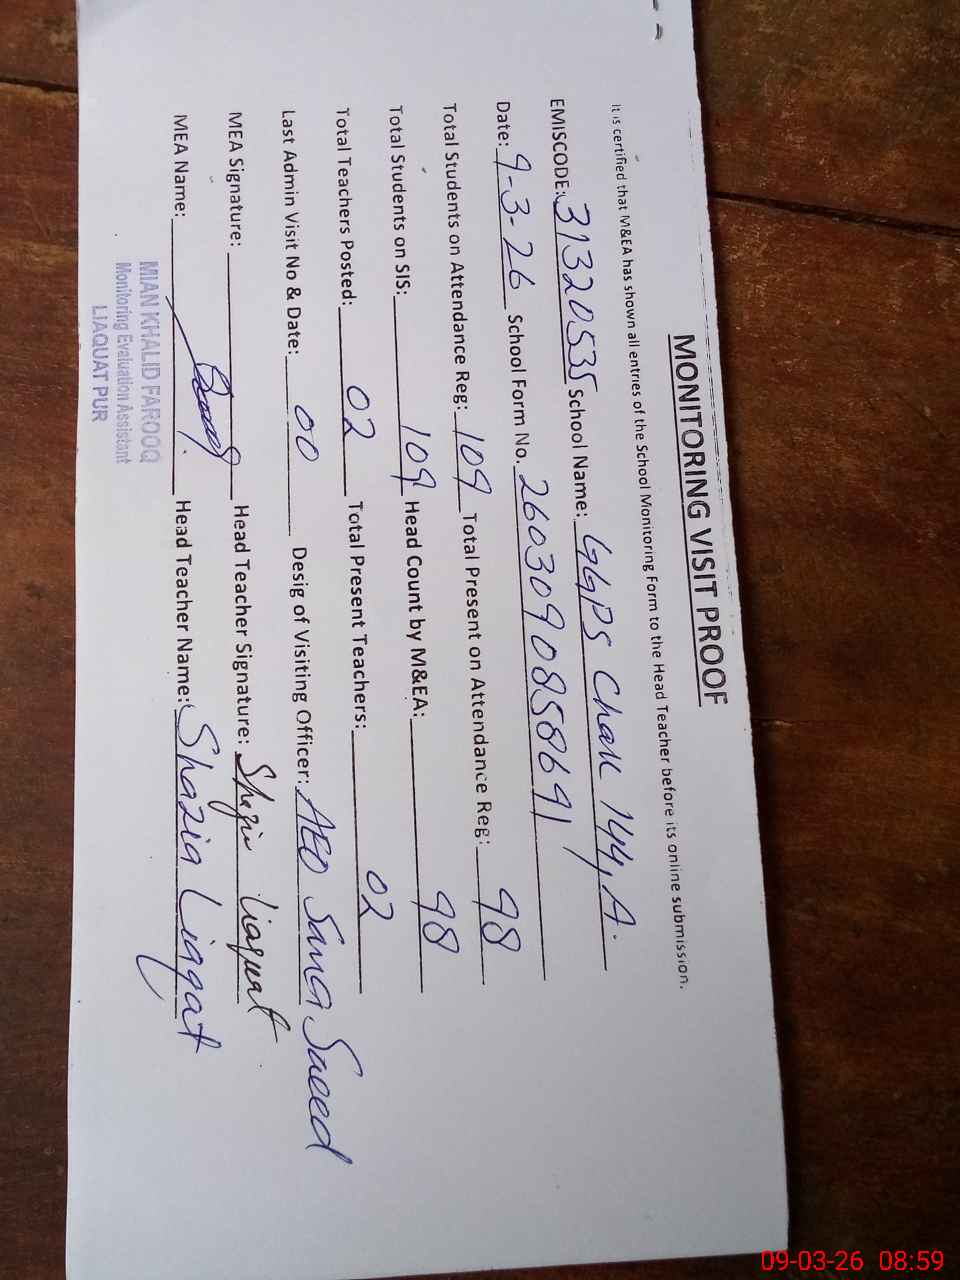 MONITORING VISIT PROOF
It is certified that M&EA has shown all entries of the School Monitoring Form to the Head Teacher before its online submission.
EMISCODE: 31320535 School Name: GGPS Chak 144, A.
Date: 9-3-26 School Form No. 2603090858691
Total Students on Attendance Reg: 109 Total Present on Attendance Reg: 98
Total Students on SIS: 109 Head Count by M&EA: 98
Total Teachers Posted: 02 Total Present Teachers: 02
Last Admin Visit No & Date: 00 Desig of Visiting Officer: AEO Sama Saeed
MEA Signature: Head Teacher Signature: Shazia Liaquat
MEA Name: Head Teacher Name: Shazia Liaqat
MIAN KHALID FAROOQ
Monitoring Evaluation Assistant
LIAQUAT PUR
09-03-26 08:59